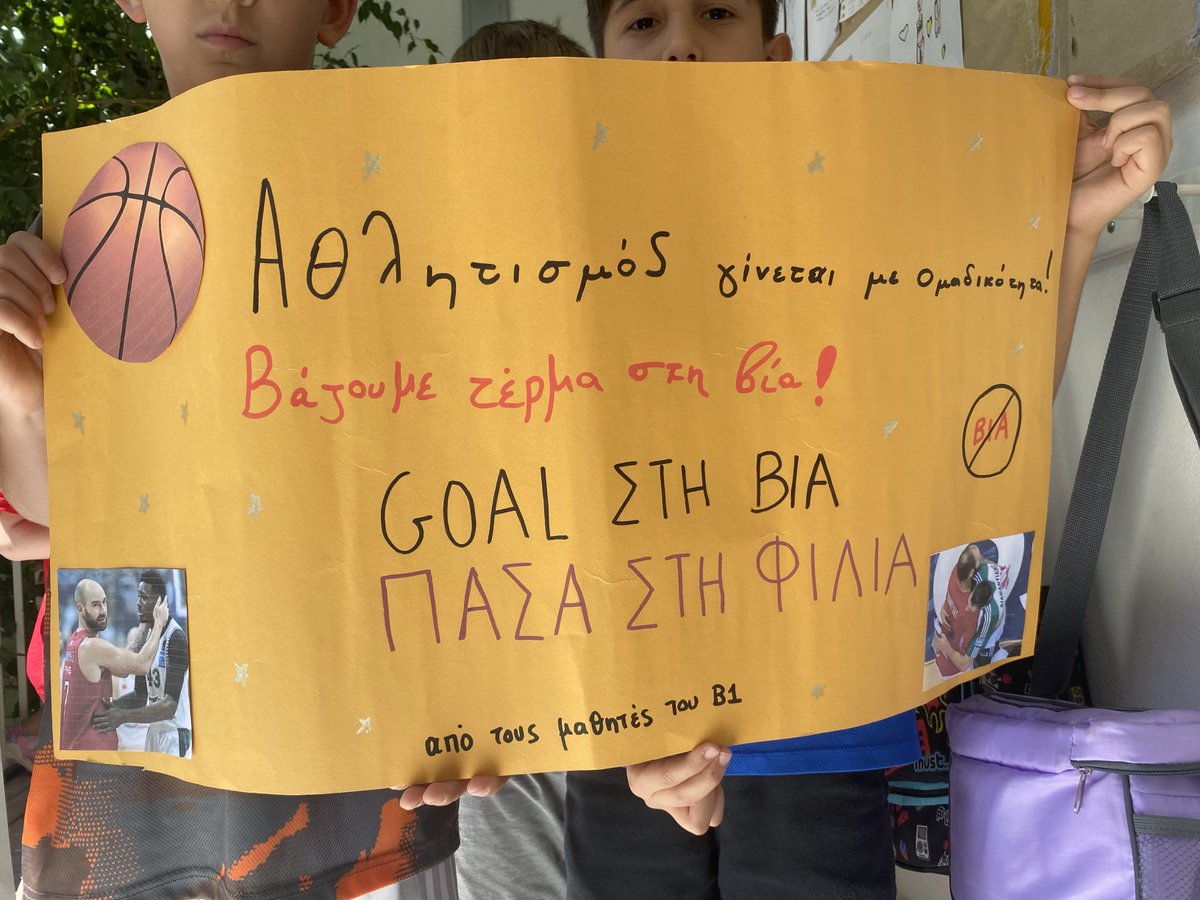 Αθλητισμός γίνεται με ομαδικότητα!
Βάζουμε τέρμα στη βία!
ΒΙΑ
GOAL ΣΤΗ ΒΙΑ
ΠΑΣΑ ΣΤΗ ΦΙΛΙΑ
ΔΙΑΜΑΝΤΙΔ
43
από τους μαθητές του Β1
must